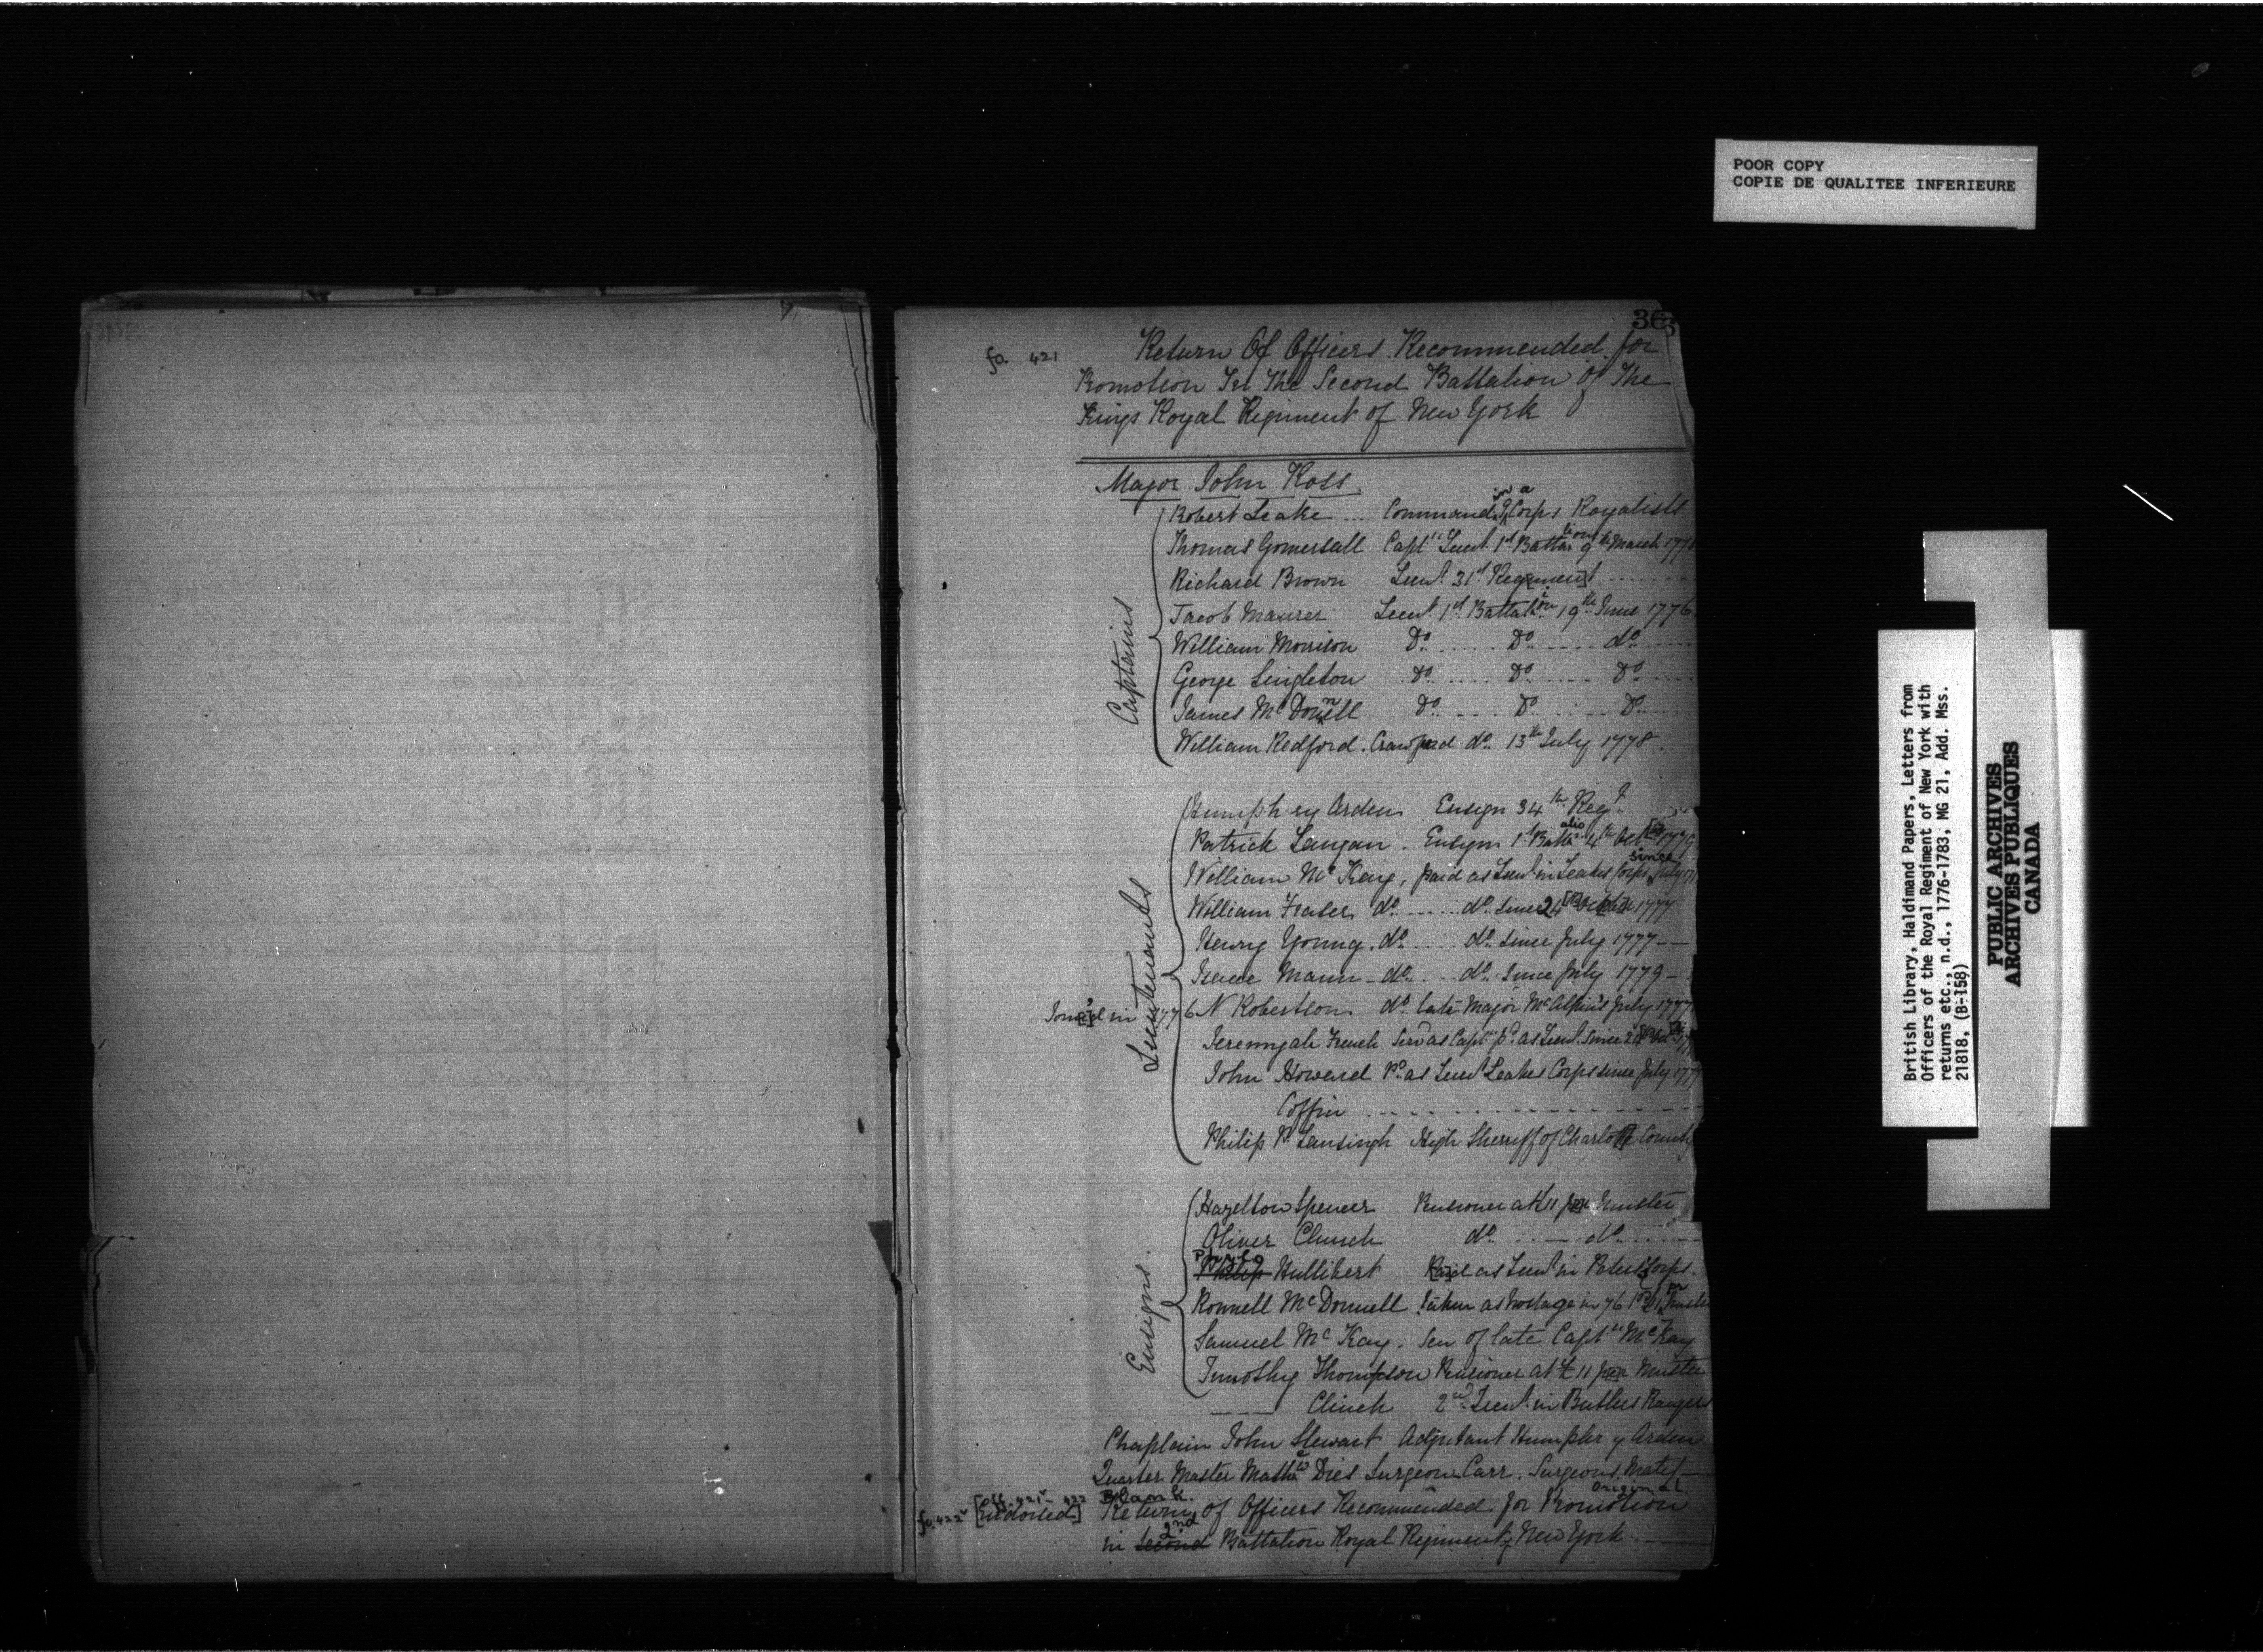 POOR COPY
COPIE DE QUALITEE INFERIEURE
363
fo. 421
Return Of Officers Recommended for
Promotion In The Second Battalion Of The
Kings Royal Regiment of New York
Major John Ross
Captains
Robert Leake .... Command.g in a Corps Royalists
Thomas Gomersall Capt.n Lieut. 1st Battalion 9th March 177
Richard Brown Lieut. 31st Regiment
Jacob Maurer Lieut. 1st Battalion 19th June 1776
William Morrison Do. ..... Do. .... do. ....
George Singleton Do. ..... Do. .... Do. ....
James McDonnell Do. .... Do. .... Do. ....
William Redford Crawford do. 13th July 1778.
Lieutenants
Humphrey Arden Ensign 34th Regt.
Patrick Langan . Ensign 1st Battalio 4th Oct 1779
William McKay, paid as Lieut in Leakes Corps since July
William Fraser do. .... do. since 24 1777
Henry Young. do. .... do. since July 1777 —
Isaac Mann - do. ... do. Since July 1779 -
Joined in 1776 N Robertson do. late Major McAlpin's July 1777
Jeremyah French Serv'd as Capt.n p.d as Lieut. Since 24
John Howard P.d as Lieut Leakes Corps since July 177
Coffin ..............
Philip P. Lansingh High Sherriff of Charlotte County
Ensigns.
Hazelton Spencer Pensioner at £11 per Muster
Oliver Church do. .... do. ....
Philip Philo Hullibert Paid as Lieut in Peters Corps.
Ronnell McDonnell taken as hostage in 76
Samuel McKay. Son of late Capt.n McKay
Timothy Thompson Pensioner at £11 per Muster
—— Clinch 2nd Lieut. in Butlers Rangers
Chaplain John Stewart Adjutant Humphr y Arden
Quarter Master Mathew Dies Surgeon Carr. Surgeons Mate
ff. 421v - 422 Blank.
original
fo. 422v [Endorsed] Return of Officers Recommended for Promotion
in Second 2nd Battalion Royal Regiment of New York. ——
British Library, Haldimand Papers, Letters from
Officers of the Royal Regiment of New York with
returns etc., n.d., 1776-1783, MG 21, Add. Mss.
21818, (B-158)
PUBLIC ARCHIVES
ARCHIVES PUBLIQUES
CANADA